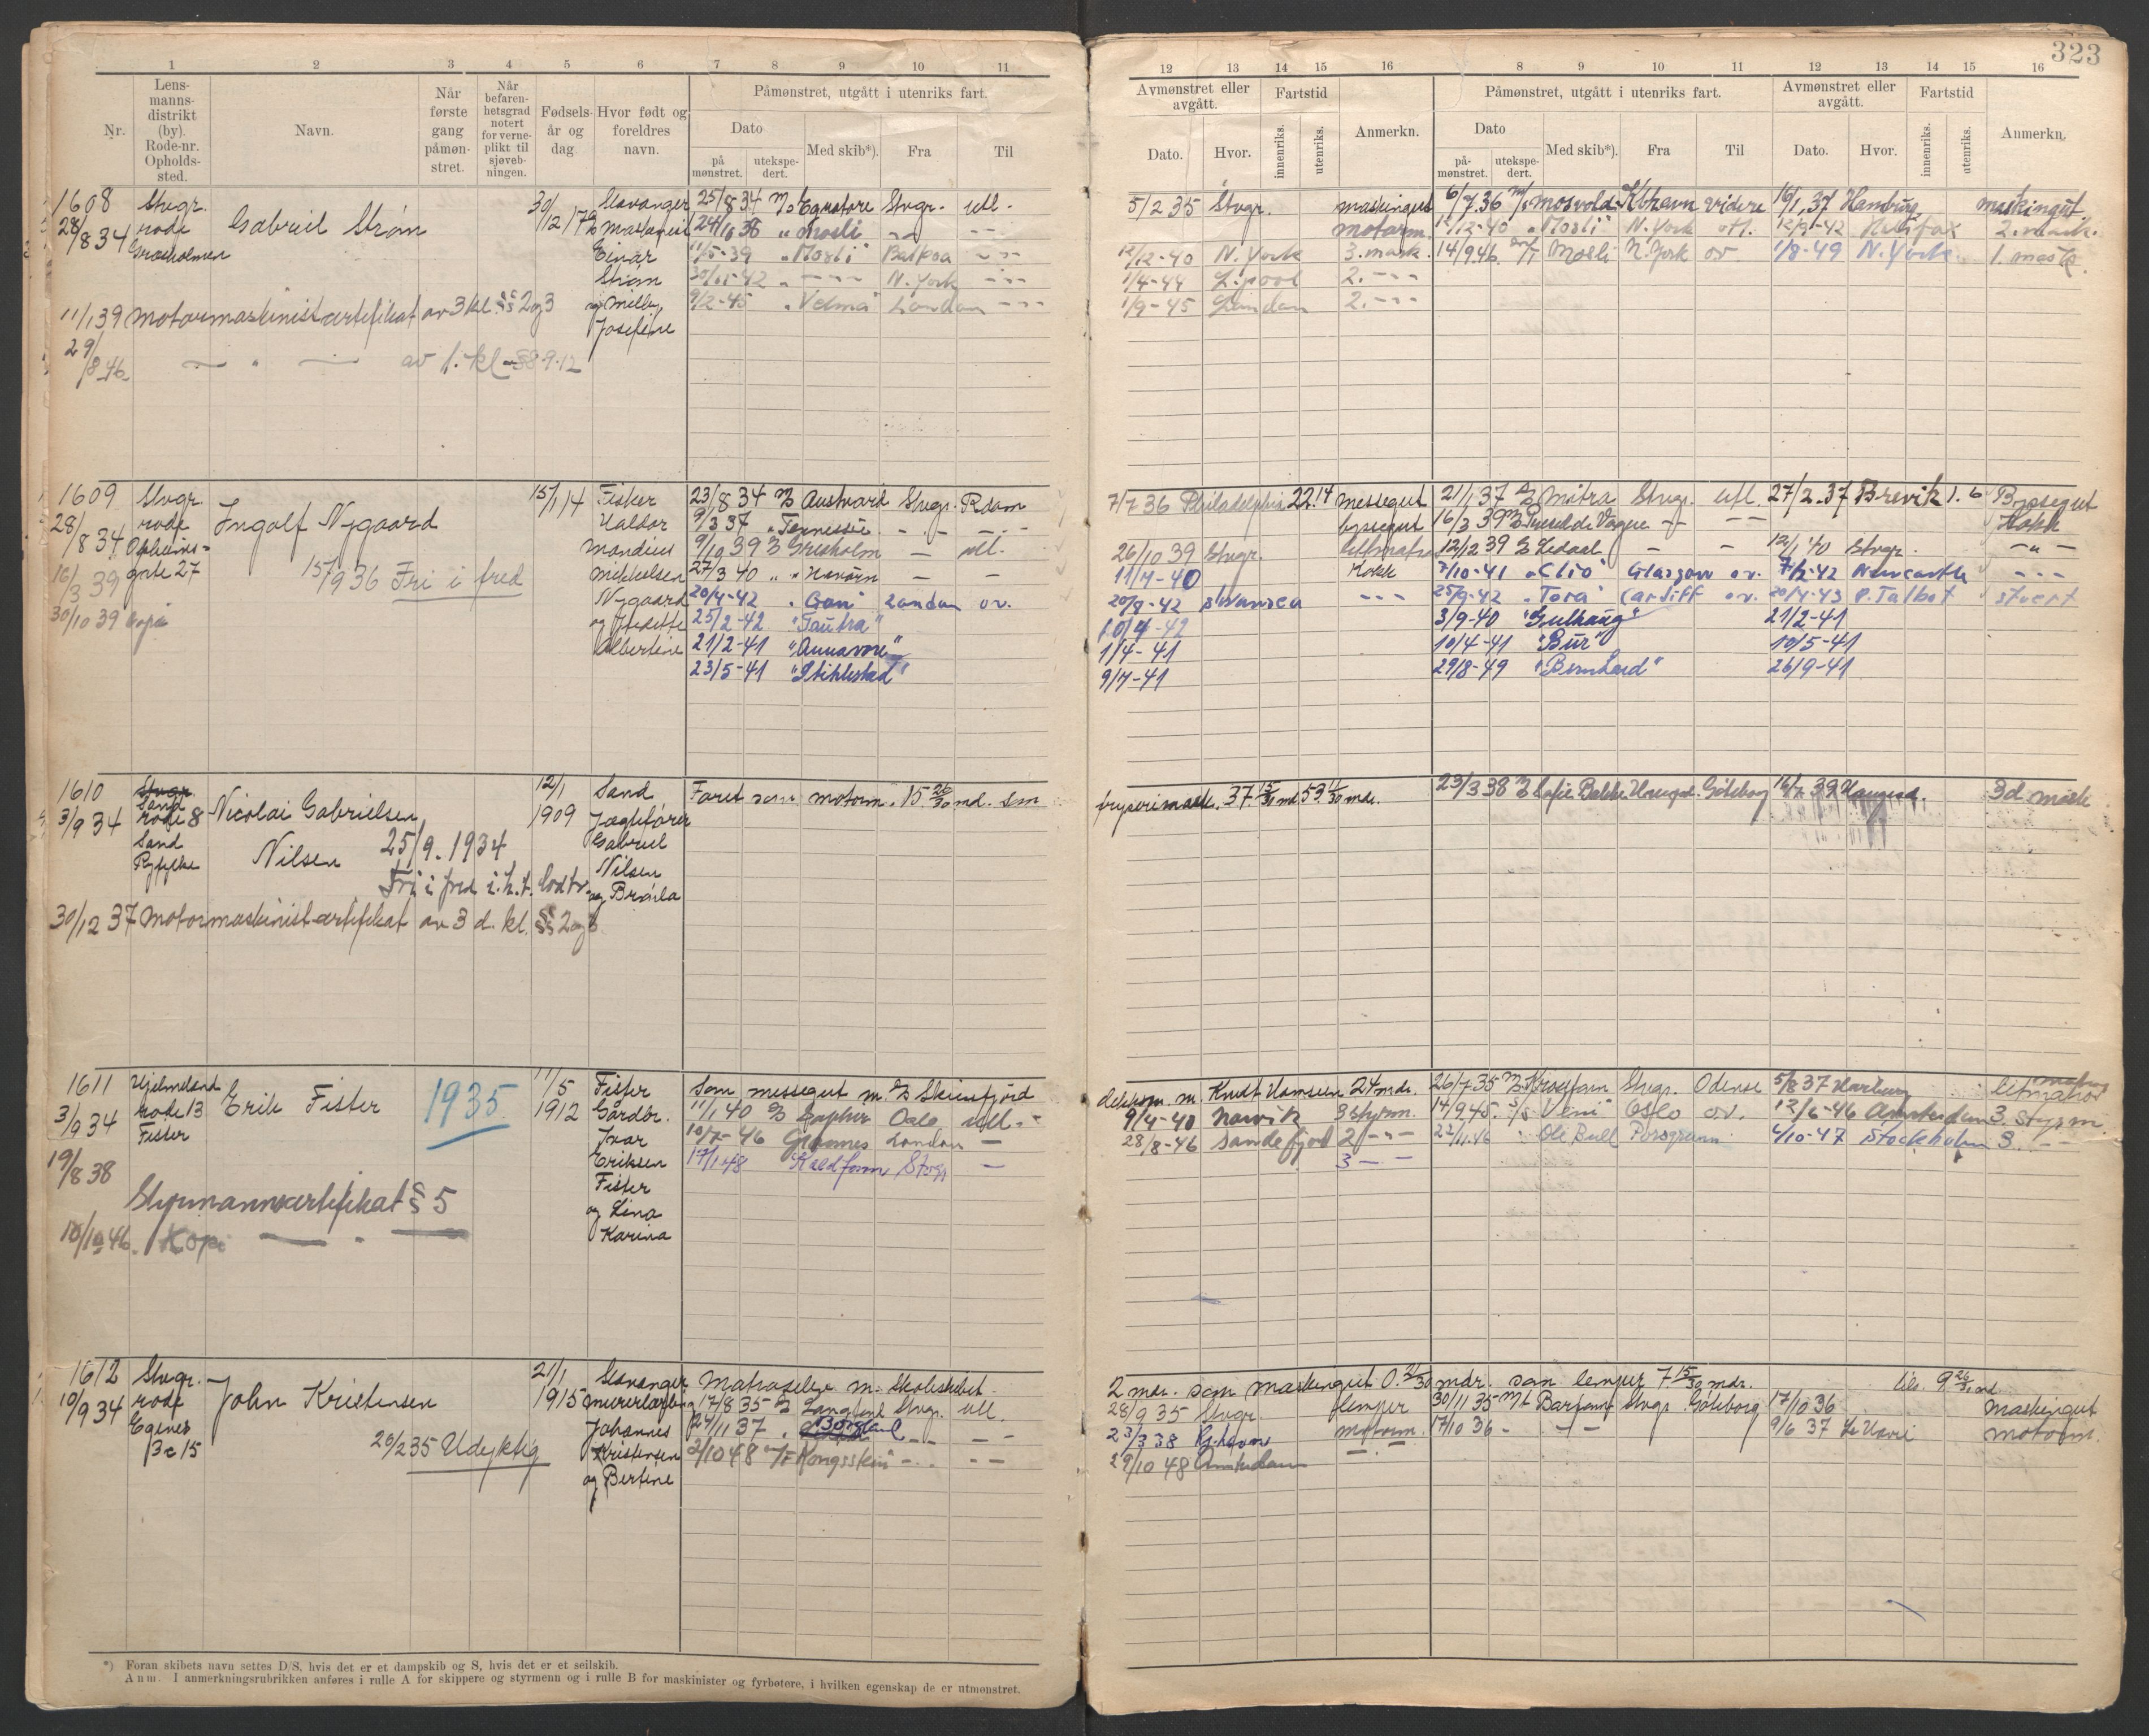 323
1 2 3 4 5 6 7 8 9 10 11
Lensmanns-distrikt (by). Rode-nr. Opholds-sted.
Nr.
Navn.
Når første gang påmønstret.
Når befarenhetsgrad notert for verneplikt til sjøvebningen.
Fødselsår og dag.
Hvor født og foreldres navn.
Påmønstret, utgått i utenriks fart.
Dato
på mønstret.
utekspedert.
Med skib*).
Fra
Til
12 13 14 15 16 8 9 10 11 12 13 14 15 16
Avmønstret eller avgått.
Fartstid
Dato.
Hvor.
innenriks.
utenriks.
Anmerkn.
Påmønstret, utgått i utenriks fart.
Dato
påmønstret.
utekspedert.
Med skib*).
Fra
Til
Avmønstret eller avgått.
Dato.
Hvor.
Fartstid
innenriks.
utenriks.
Anmerkn.
1608 Stvgr.
28/8 34 rode
Grasholmen
Gabriel Strøm
30/12 17
Stavanger
Maskinist
Einar
Strøm
og Milly
Josefine
25/8 34 M/S Egnatore Stvgr. utl.
24/10 38 " Mosli
11/5-39 "Mosli" Balboa
30/ -42 N. York
9/2-45 "Velma London
11/1 39 Motormaskinistcertifikat av 3 kl. §§ 2 og 3
29/8-46 — " — av 1. kl - §8-9-12
5/2 35 Stvgr. maskingut 6/7.36 M/S Mosvold Kbhavn videre 16/1.37 Hamburg maskingut
motorm. 12/12-40 "Mosli" N. York utl. 12/9-42 Halifax 2. mask.
12/12-40 N. York 3. mask. 14/9.46 Mosli N. York ov. 1/8-49 N. York 1. mask.
1/4-44 L.pool 2. ---
1/9-45 London 2. ---
1609 Stvgr.
28/8 34 rode
Opheims-
16/3 39 gate 27
30/10 39 kopi
Ingolf Nygaard
15/9 36 Fri i fred
15/1 14
Fisker
Haldor
Mandius
Mikkelsen
Nygaard
og Fredette
Albertine
23/8 34 Austvard Stvgr. Rdam
9/3 37 " Tennessee
9/10 39 Grisholm — utl.
27/3 40 " " Havørn — —
20/4-42 " Gran" London ov.
25/2-42 "Tautra"
21/2-41 "Annavore"
23/5-41 "Stiklestad"
7/7 36 Philadelphia 22.14 messegut 21/1 37 Mitra Stvgr. utl. 27/2.37 Brevik 1. 6 Byssegut
byssegut 16/3 39 Kokk
26/10 39 Stvgr. lettmatr. 12/12 39 Ledaal — — 12/1 40 Stvgr. — " —
11/4-40 Kokk 7/10-41 "Clio" Glasgow ov. 7/2-42 Newcastle - - -
20/8-42 Swansea - - - 25/9-42 "Tora" Cardiff ov. 20/4-43 P. Talbot stuert
10/4-42 3/9-40 "Gulhaug" 21/2-41
1/4-41 10/4-41 "Bur" 10/5-41
9/7-41 29/8-49 "Bernhard" 26/9-41
1610 Stvgr.
Sand
3/9 34 rode 8
Sand
Ryfylke
Nicolai Gabrielsen
Nilsen 25/9.1934
Fri i fred i.h.t. lodtr.
12/1
1909
Sand
Jagtefører
Gabriel
Nilsen
og Brorla
30/12 37 Motormaskinistcertifikat av 3 d. kl. §§ 2 og 3
Faret som motorm. 15 26/30 md. sm
fryserimask. 37 15/30 md 53 11/30 mdr. 23/3 38 Sofie Bakke Haugsd. Göteborg 39 Haugesd. 3d mask
1611 Hjelmeland
3/9 34 rode 13
Fister
Erik Fister 1935
11/5
1912
Fister
Gårdbr.
Ivar
Eriksen
Fister
og Lina
Karina
19/8 38
Styrmannscertifikat § 5
10/10 46. Kopi — " —
Som messegut m. Skiensfjord
11/1 40 Oslo utl.
10/7-46 London —
17/1 48 Kaldfonn Stvgr —
dekksm. m. Knut Hamsun 24 mdr. 26/7 35 Stvgr. Odense 5/8 37 Harburg letmatros
9/4-40 Narvik 3 styrm. 14/9 45. S/S "Veni" Oslo ov. 12/6-46 Amsterdam 3. styrm.
28/8-46 Sandefjord 2 - " - 22/11.46 " Ole Bull Porsgrunn. 4/10-47 Stockholm 3. —
3 — —
1612 Stvgr.
10/9 34 rode
Egenes
3c 15
John Kristensen
20/2 35 Udyktig
21/1
1915
Stavanger
murerlærling
Johannes
Kristensen
og Bertine
Matroselev m. Skoleskibet
17/8 35 Stvgr. utl.
24/11 37
2/10 48 M/T Kongsstein
2 mdr. som maskingut 0. 21/30 mdr. som lemper 7. 15/30 mdr. 9 26/30 md
28/9 35 Stvgr. lemper 30/11 35 M/t Barfonn Stvgr. Göteborg 17/10 36 Maskingut
23/3 38 Kj.havn motorm. 17/10 36 - — — 9/6 37 Le Havre motorm.
29/10 48 Amsterdam
*) Foran skibets navn settes D/S, hvis det er et dampskib og S, hvis det er et seilskib.
Anm. I anmerkningsrubrikken anføres i rulle A for skippere og styrmenn og i rulle B for maskinister og fyrbøtere, i hvilken egenskap de er utmønstret.